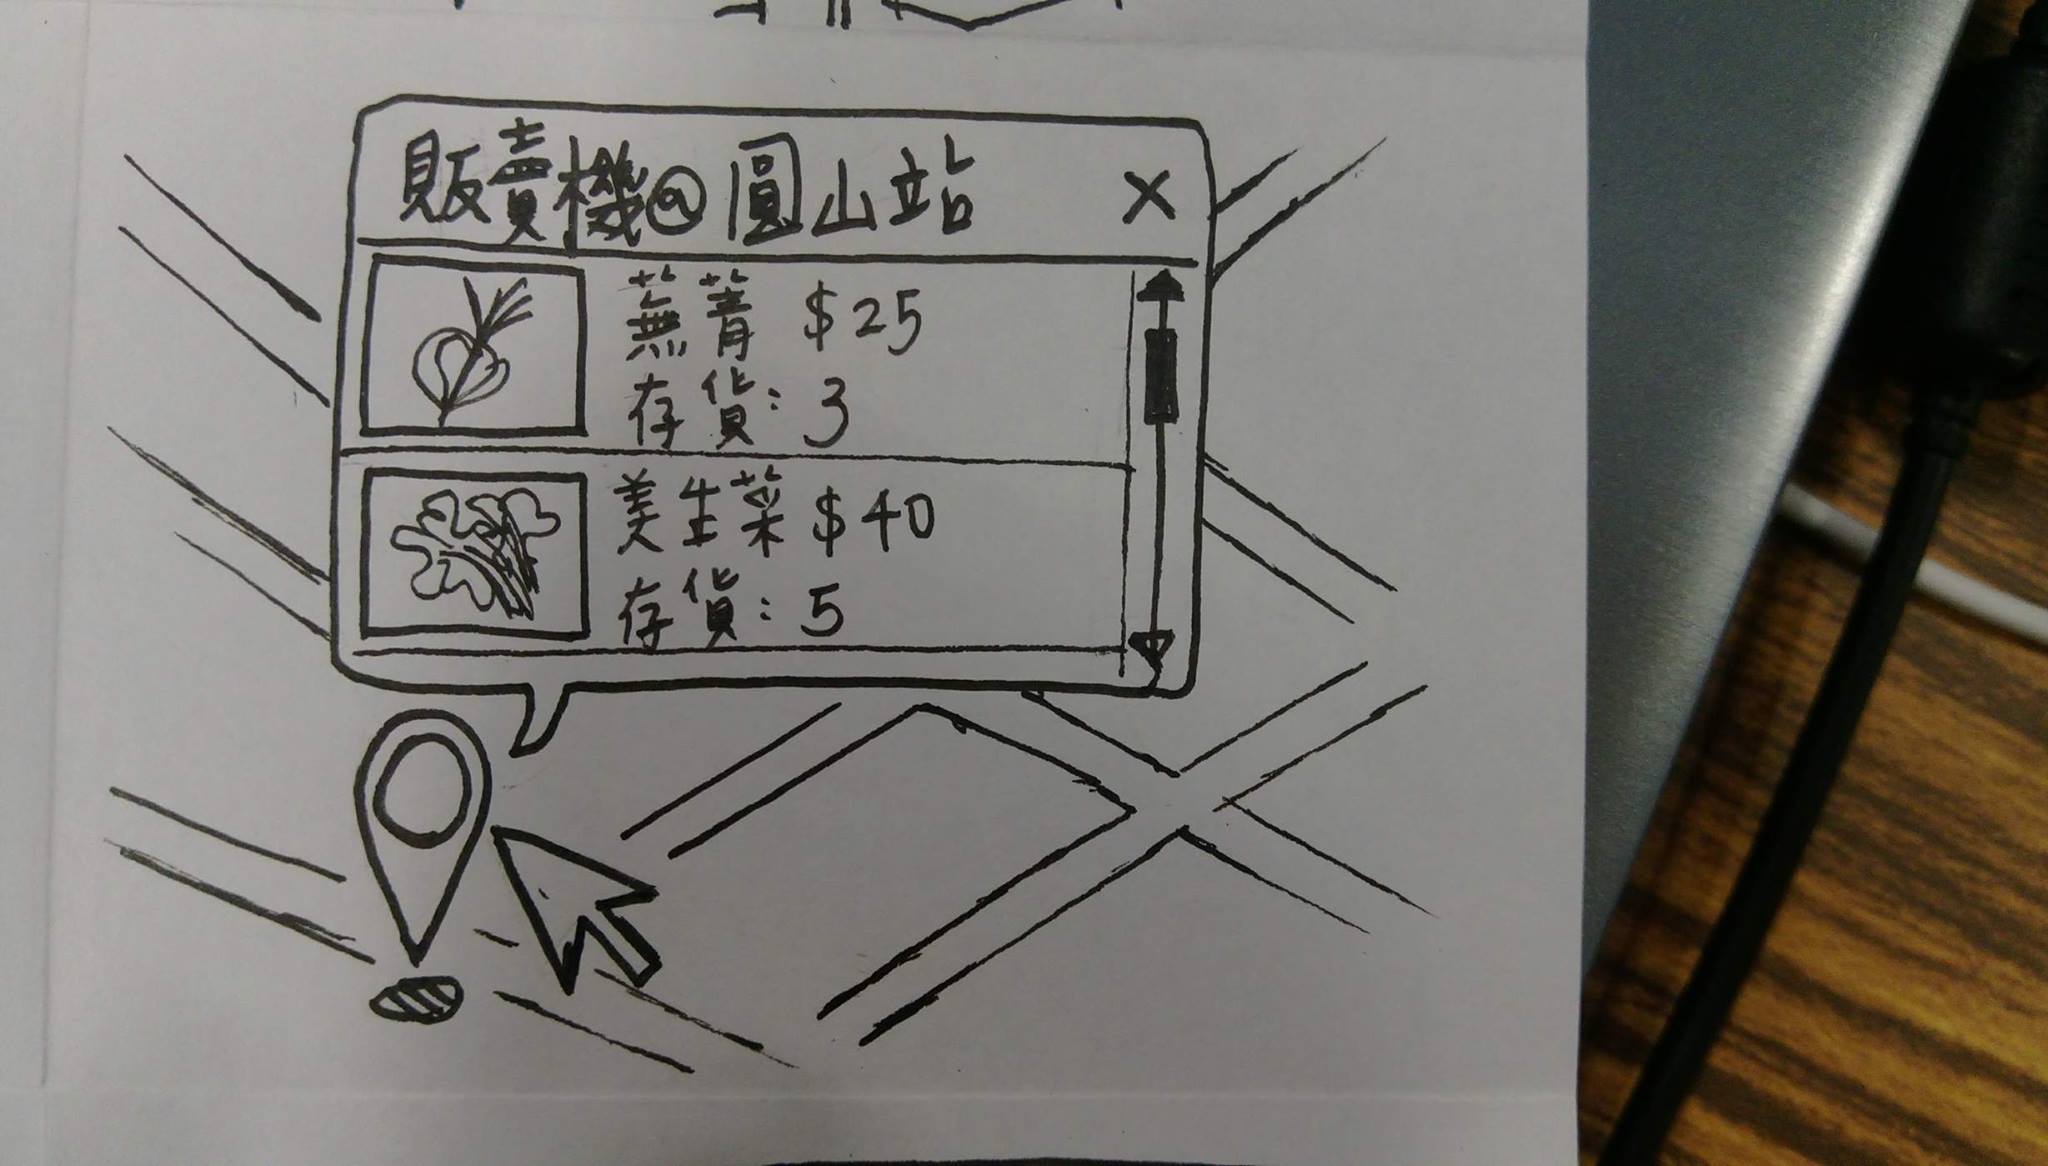 販賣機@圓山站 X
蕪菁 $25
存貨: 3
美生菜 $40
存貨: 5